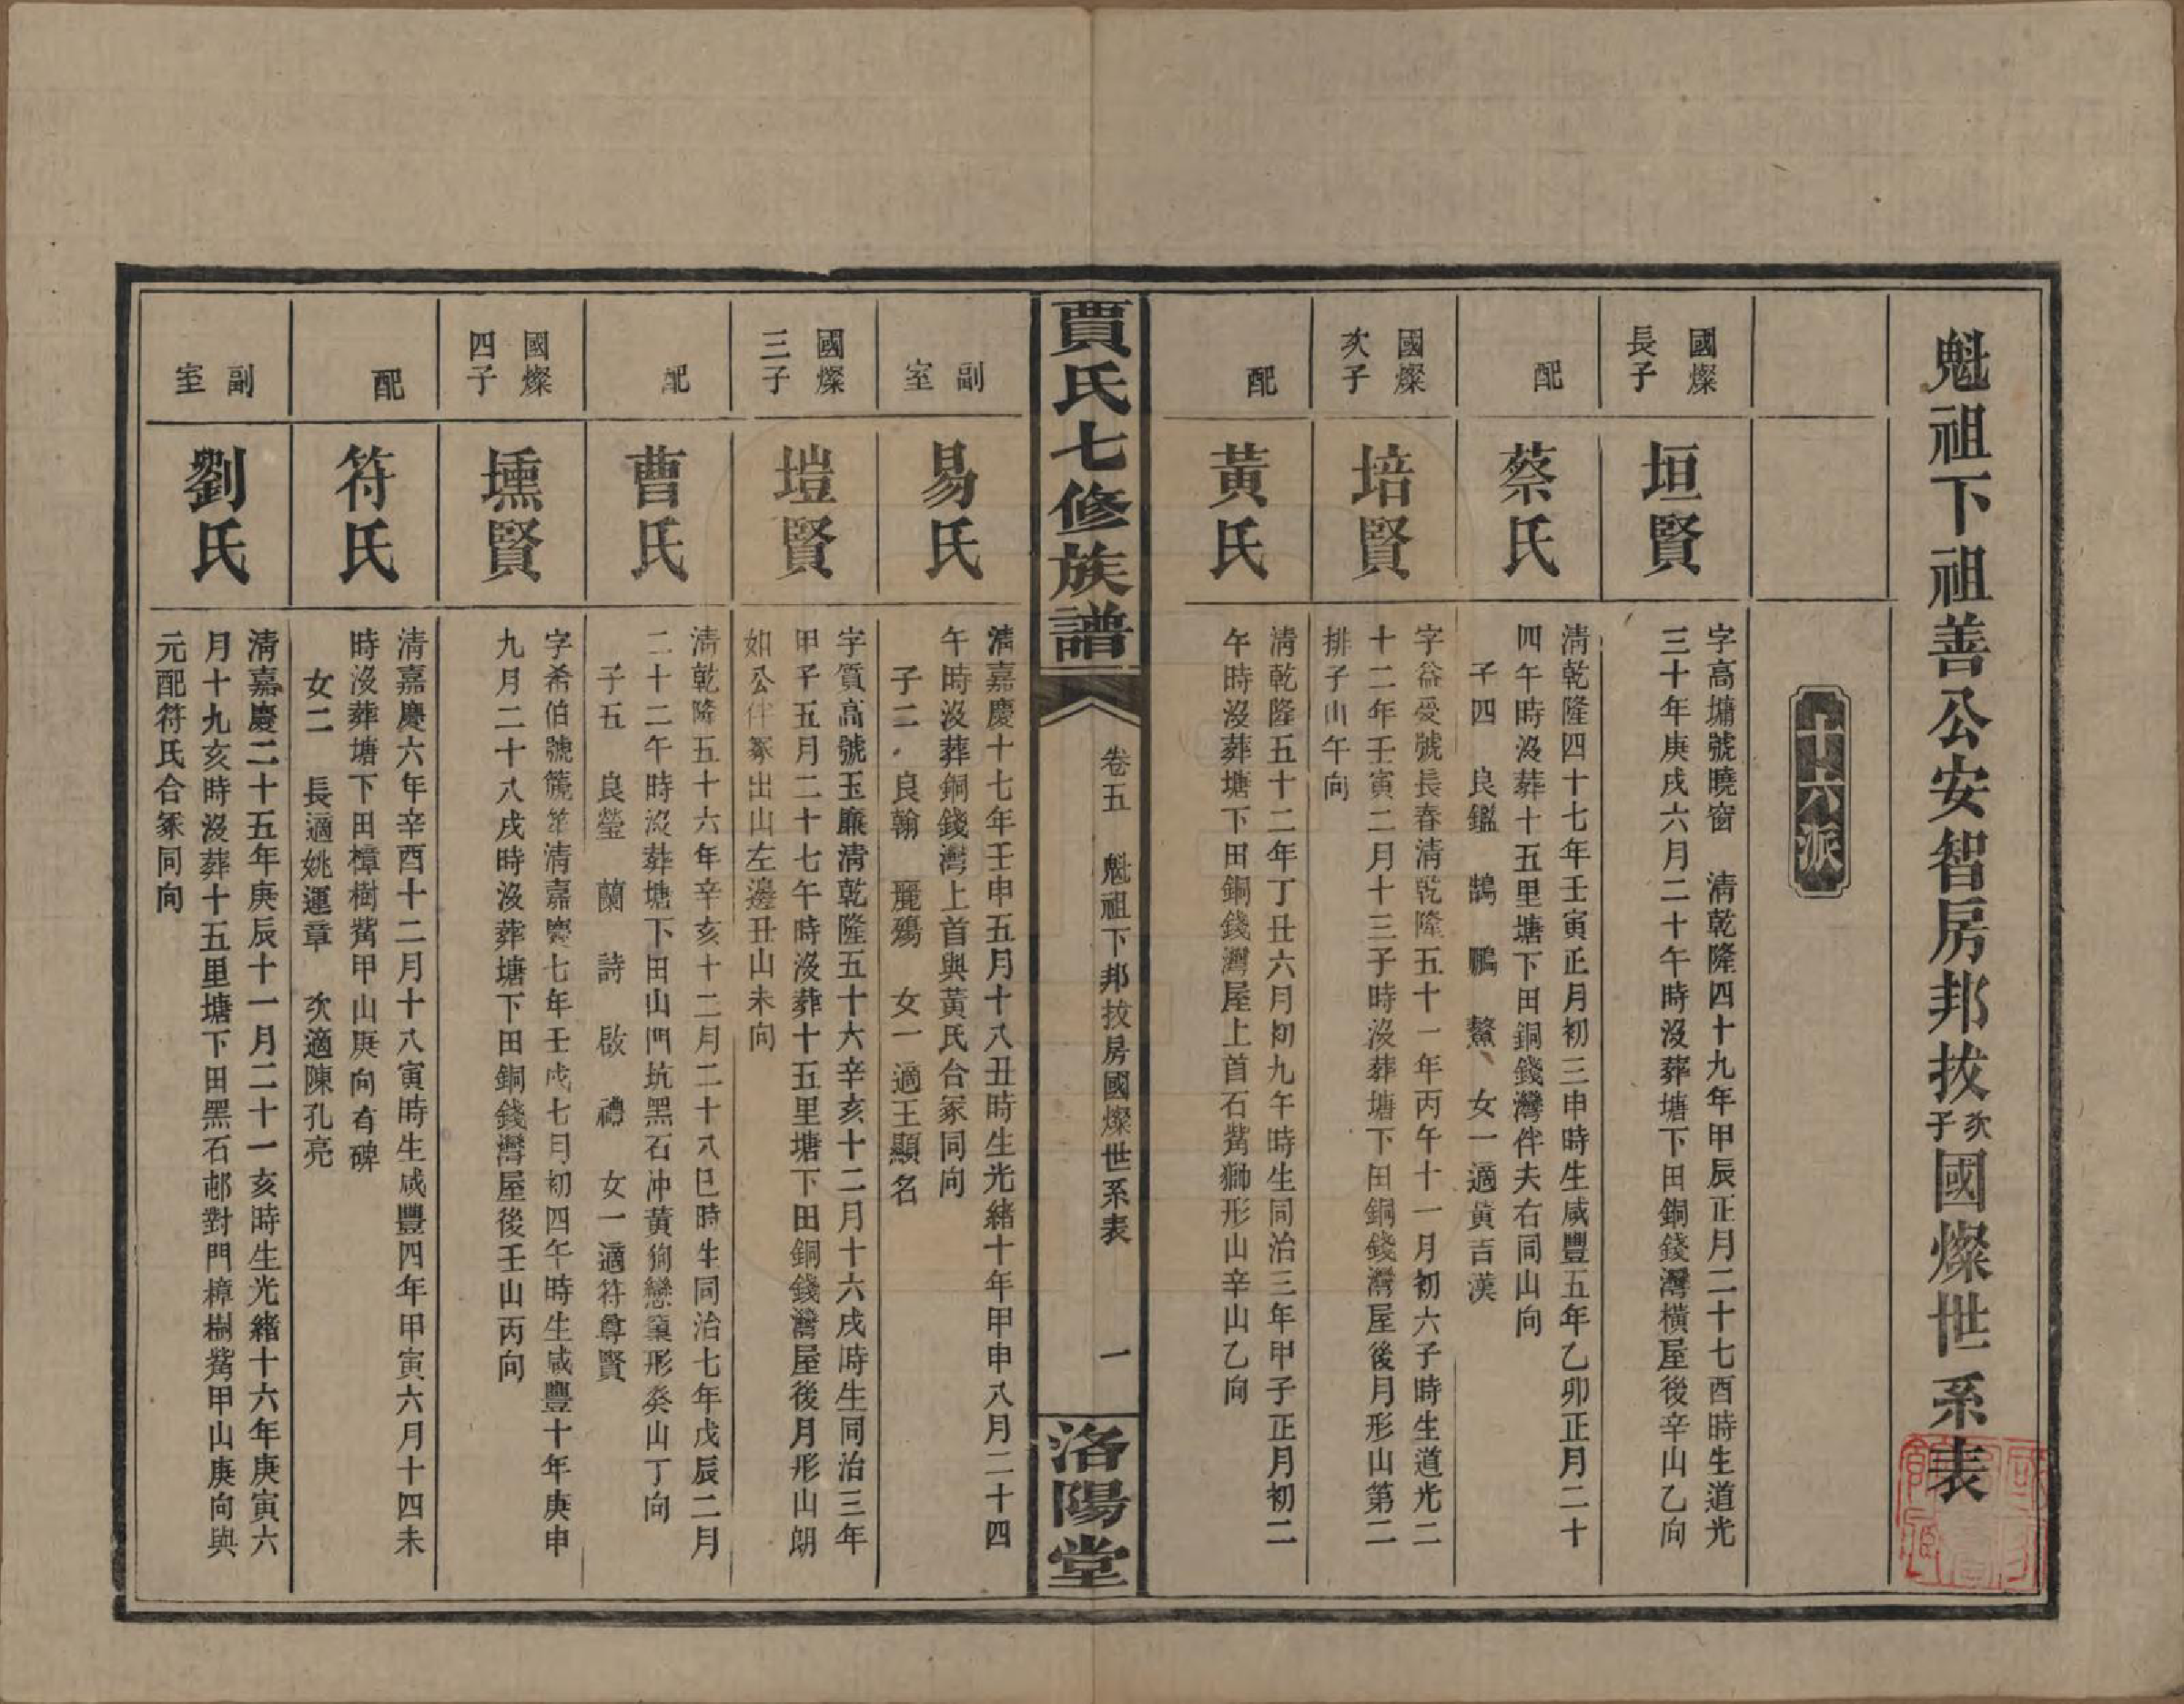 魁祖下祖善公安智房邦拔次子國燦世系表
十六派
國燦長子
垣賢
字高墉號曉窗　清乾隆四十九年甲辰正月二十七酉時生道光
三十年庚戌六月二十午時沒葬塘下田銅錢灣橫屋後辛山乙向
配
蔡氏
清乾隆四十七年壬寅正月初三申時生咸豐五年乙卯正月二十
四午時沒葬十五里塘下田銅錢灣伴夫右同山向
子四　良鑑　鵠　鵬　鰲　女一適黃吉漢
國燦次子
培賢
字益受號長春清乾隆五十一年丙午十一月初六子時生道光二
十二年壬寅二月十三子時沒葬塘下田銅錢灣屋後月形山第二
排子山午向
配
黃氏
清乾隆五十二年丁丑六月初九午時生同治三年甲子正月初二
午時沒葬塘下田銅錢灣屋上首石嘴獅形山辛山乙向
賈氏七修族譜
卷五　魁祖下邦拔房國燦世系表　一
洛陽堂
副室
易氏
清嘉慶十七年壬申五月十八丑時生光緒十年甲申八月二十四
午時沒葬銅錢灣上首與黃氏合冢同向
子二　良翰　麗殤　女一適王顯名
國燦三子
塏賢
字質高號玉廉清乾隆五十六辛亥十二月十六戌時生同治三年
甲子五月二十七午時沒葬十五里塘下田銅錢灣屋後月形山朗
如公伴冢出山左邊丑山未向
配
曹氏
清乾隆五十六年辛亥十二月二十八巳時生同治七年戊辰二月
二十二午時沒葬塘下田山門坑黑石沖黃狗戀窠形癸山丁向
子五　良瑩　蘭　詩　啟　禮　女一適符尊賢
國燦四子
壎賢
字希伯號篪笙清嘉慶七年壬戌七月初四午時生咸豐十年庚申
九月二十八戌時沒葬塘下田銅錢灣屋後壬山丙向
配
符氏
清嘉慶六年辛酉十二月十八寅時生咸豐四年甲寅六月十四未
時沒葬塘下田樟樹嘴甲山庚向有碑
女二　長適姚運章　次適陳孔亮
副室
劉氏
清嘉慶二十五年庚辰十一月二十一亥時生光緒十六年庚寅六
月十九亥時沒葬十五里塘下田黑石邨對門樟樹嘴甲山庚向與
元配符氏合冢同向